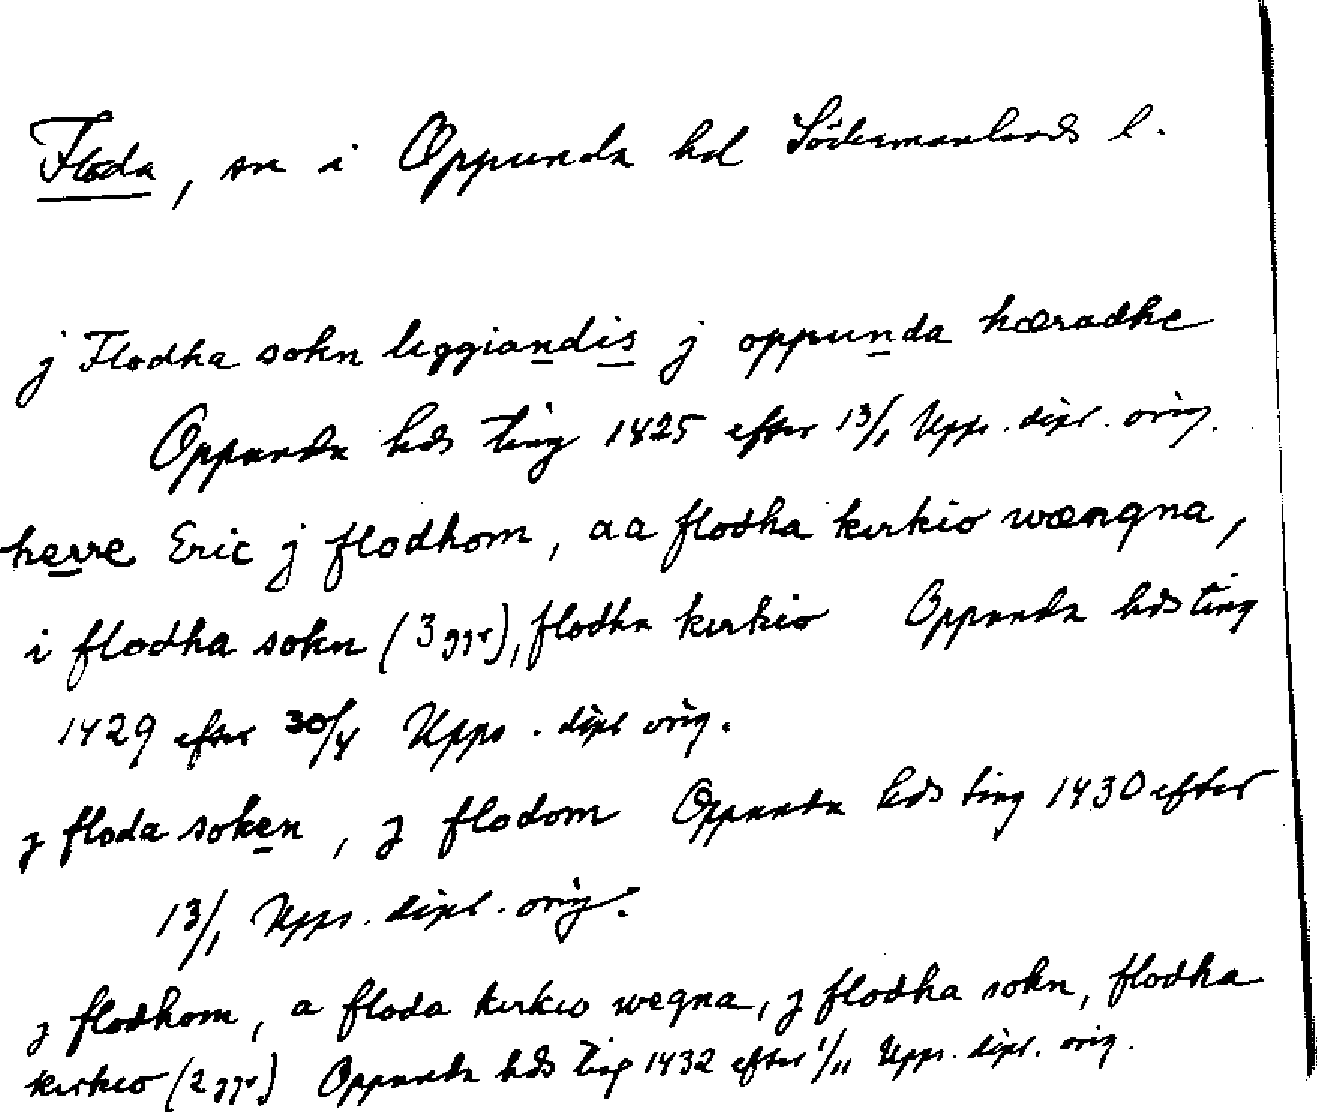 Floda, sn i Oppunda hd Södermanlands l.
j Flodha sokn leggiandis j oppunda hæradhe
Oppunda hds ting 1425 efter 13/1 Upps. dipl. orig.
herre Eric j flodhom, aa flodha kirkio wængna,
i flodha sokn (3 ggr), flodha kirkio Oppunda hds ting
1429 efter 30/4 Upps. dipl orig.
j floda soken, j flodom Oppunda hds ting 1430 efter
13/1 Upps. dipl. orig.
j flodhom, a floda kirkio wegna, j flodha sokn, flodha
kirkio (2 ggr) Oppunda hds ting 1432 efter 1/11 Upps. dipl. orig.